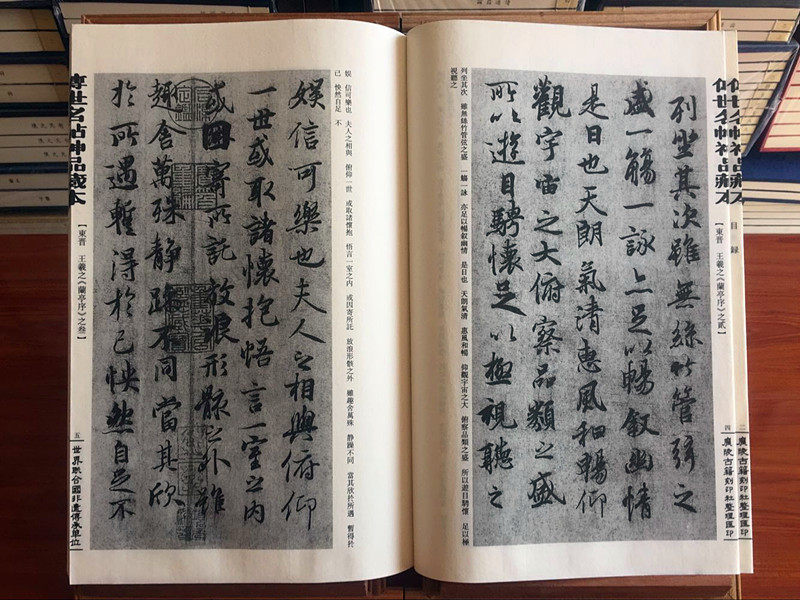 傳世名帖神品藏本
目録
二
廣陵古籍刻印社整理匯印
傳世名帖神品藏本
【東晋 王羲之《蘭亭序》之貳】
四
廣陵古籍刻印社整理匯印
列坐其次雖無絲竹管弦之
盛一觴一詠亦足以暢叙幽情
是日也天朗氣清惠風和暢仰
觀宇宙之大俯察品類之盛
所以遊目騁懷足以極視聽之
列坐其次 雖無絲竹管弦之盛 一觴一詠 亦足以暢叙幽情 是日也 天朗氣清 惠風和暢 仰觀宇宙之大 俯察品類之盛 所以遊目騁懷 足以極
視聽之
娛 信可樂也 夫人之相與 俯仰一世 或取諸懷抱 悟言一室之内 或因寄所託 放浪形骸之外 雖趣舍萬殊 静躁不同 當其欣於所遇 暫得於
己 怏然自足 不
娛信可樂也夫人之相與俯仰
一世或取諸懷抱悟言一室之内
或因寄所託放浪形骸之外雖
趣舍萬殊静躁不同當其欣
於所遇暫得於己怏然自足不
傳世名帖神品藏本
【東晋 王羲之《蘭亭序》之叁】
五
世界聯合國非遺傳承單位